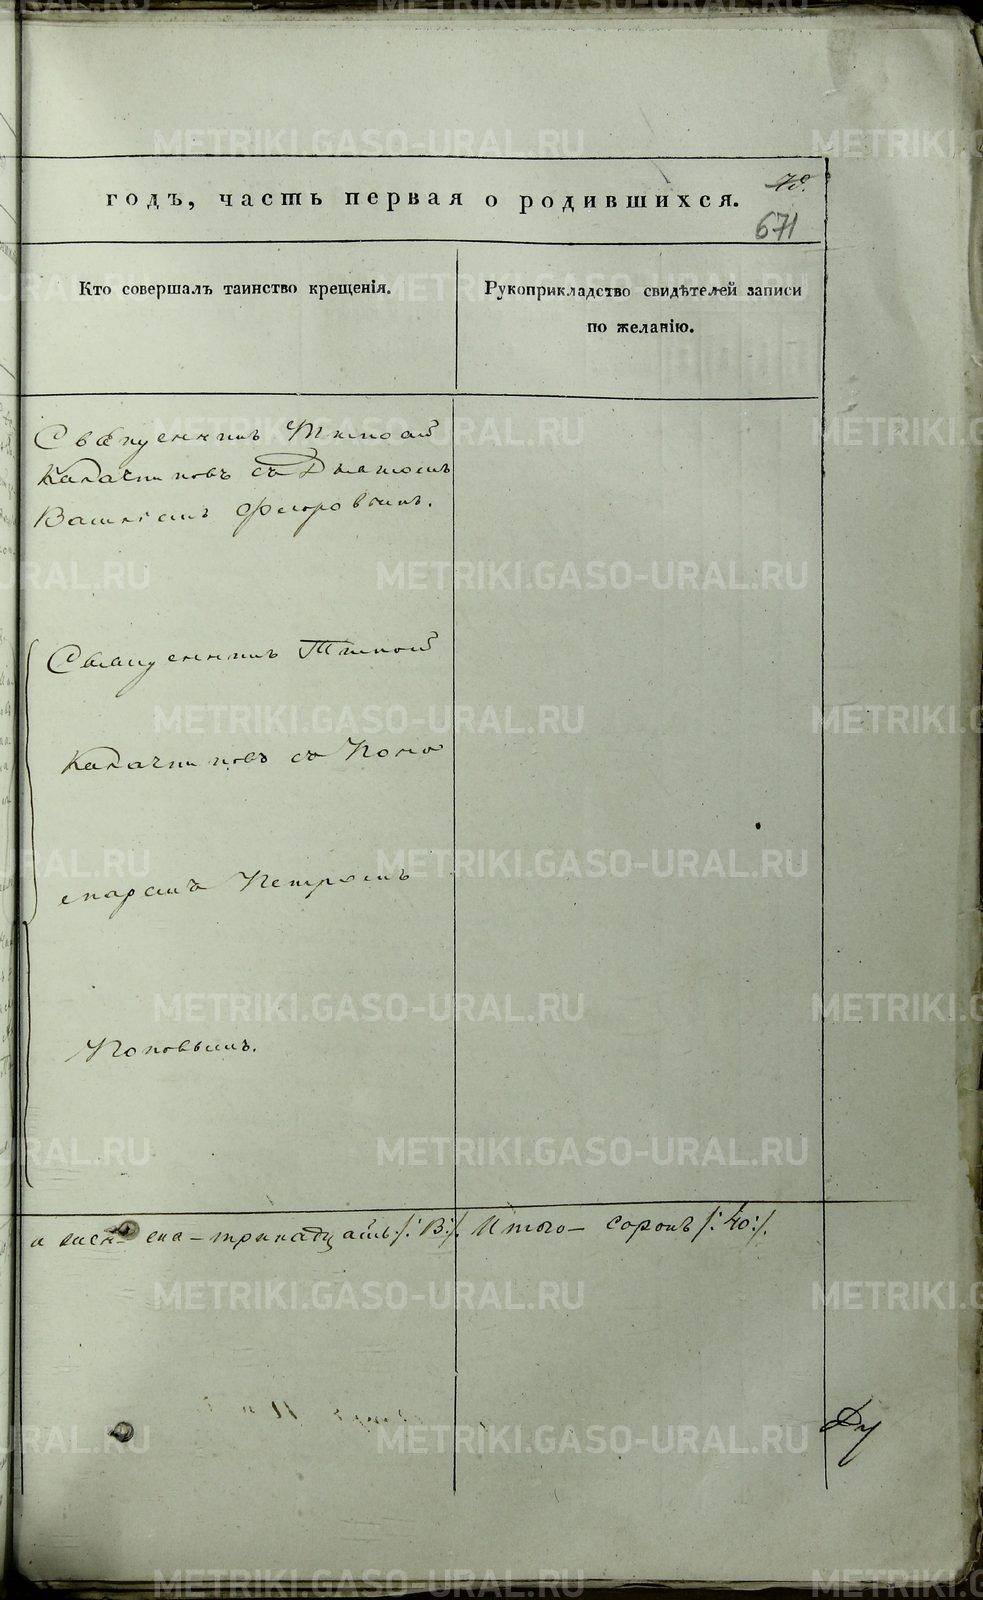 годъ, часть первая о родившихся.
671
Кто совершалъ таинство крещенія.
Рукоприкладство свидѣтелей записи
по желанію.
Священникъ Тимоѳей
Калачниковъ съ Дьякомъ
Васильемъ Флоровымъ.
Священникъ Тимоѳей
Калачниковъ съ Поно
маремъ Петромъ
Поповымъ.
а женска – тринадцать /:13:/. Итого – сорокъ /:40:/.
METRIKI.GASO-URAL.RU